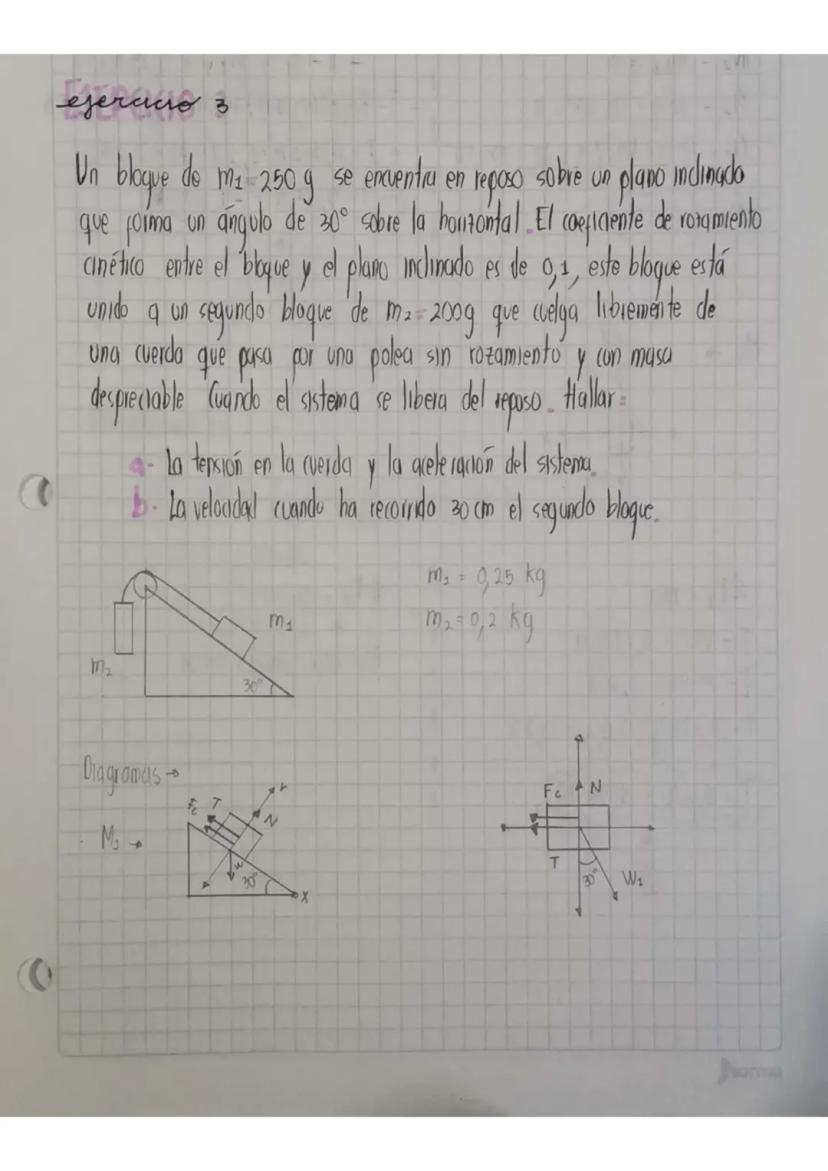 ejercicio 3
Un bloque de m1=250 g se encuentra en reposo sobre un plano inclinado
que forma un ángulo de 30° sobre la horizontal. El coeficiente de rozamiento
cinético entre el bloque y el plano inclinado es de 0,1, este bloque está
unido a un segundo bloque de m2=200g que cuelga libremente de
una cuerda que pasa por una polea sin rozamiento y con masa
despreciable Cuando el sistema se libera del reposo. Hallar:
a- La tensión en la cuerda y la aceleración del sistema.
b. La velocidad cuando ha recorrido 30 cm el segundo bloque.
m1 = 0,25 kg
m2 = 0,2 kg
m1
m2
30°
Diagramas →
M1 →
Fc T
Y
N
w
30°
X
Fc N
T
30° W1
norma